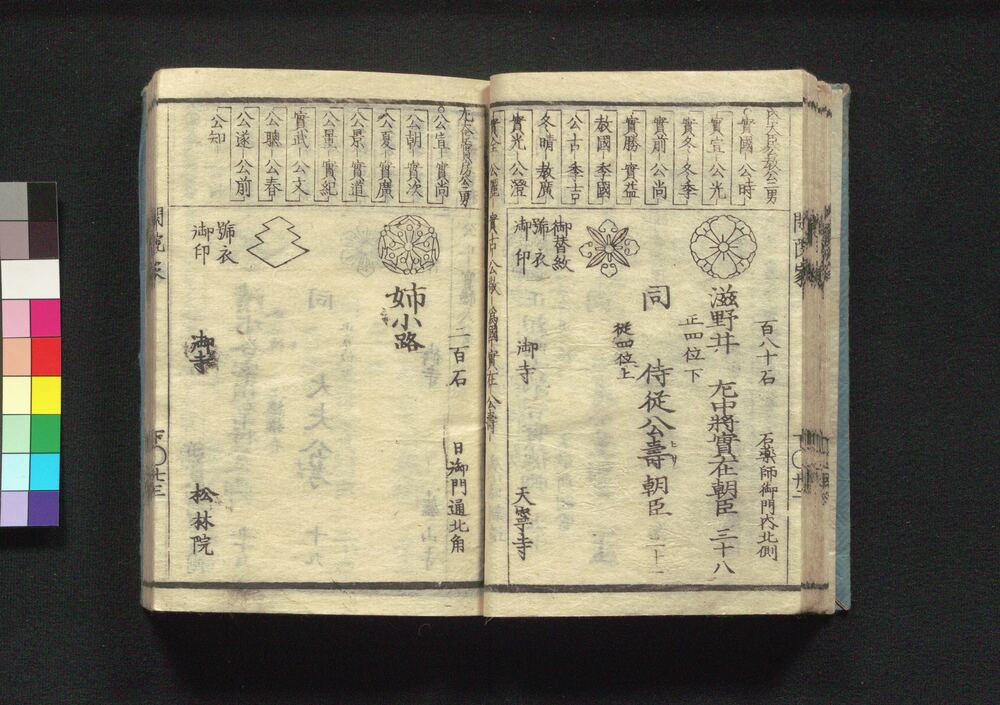 實國 公時
實宣 公光
實冬 冬季
實前 公尚
實勝 實益
教國 季國
公古 季吉
冬晴 教廣
實光 公澄
實全 公麗
實古 公敬 為國 實在 公壽
一百八十石
石藥師御門内北側
滋野井
正四位下
左中將實在朝臣 三十八
同
從四位上
侍従公壽朝臣
御替紋
號衣
御印
御寺
天寧寺
公宣 實尚
公朝 實次
公夏 實廣
公景 實道
公量 實紀
實武 公文
公聰 公春
公遂 公前
公知
姉小路
二百石
日御門通北角
號衣
御印
御寺
松林院
閑院家
下〇廿三